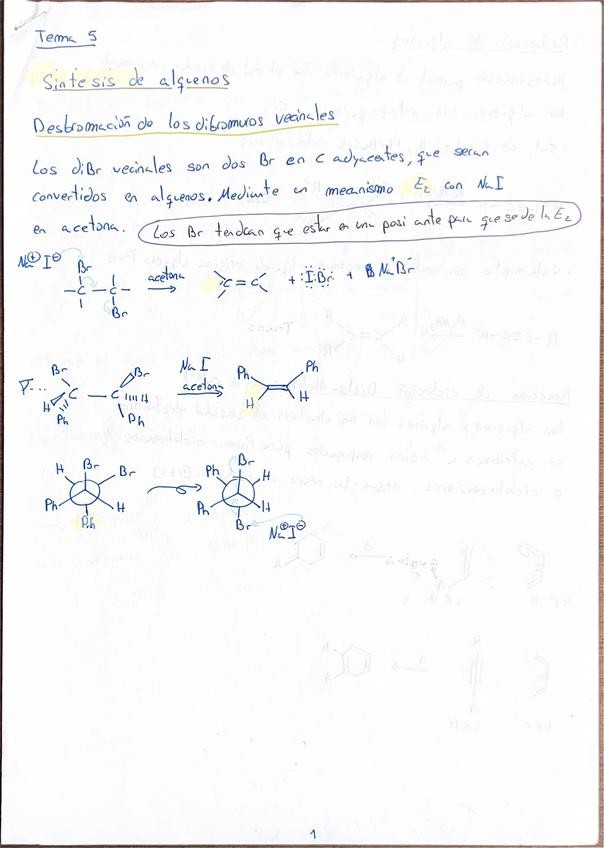 Tema 5
Síntesis de alquenos
Desbromación de los dibromuros vecinales
Los diBr vecinales son dos Br en C adyacentes, que seran
convertidos en alquenos. Mediante un mecanismo E2 con NaI
en acetona. Los Br tendran que estar en una posi ante para que se de la E2
Na⊕ I⊖
Br
– C – C – acetona → C = C + :I Br: + Na+Br-
Br
Br Br Na I Ph Ph
C – C acetona →
H H H H
Ph Ph
H Br Br Ph Br H
Ph H Ph H
Ph Br Na⊕I⊖
1